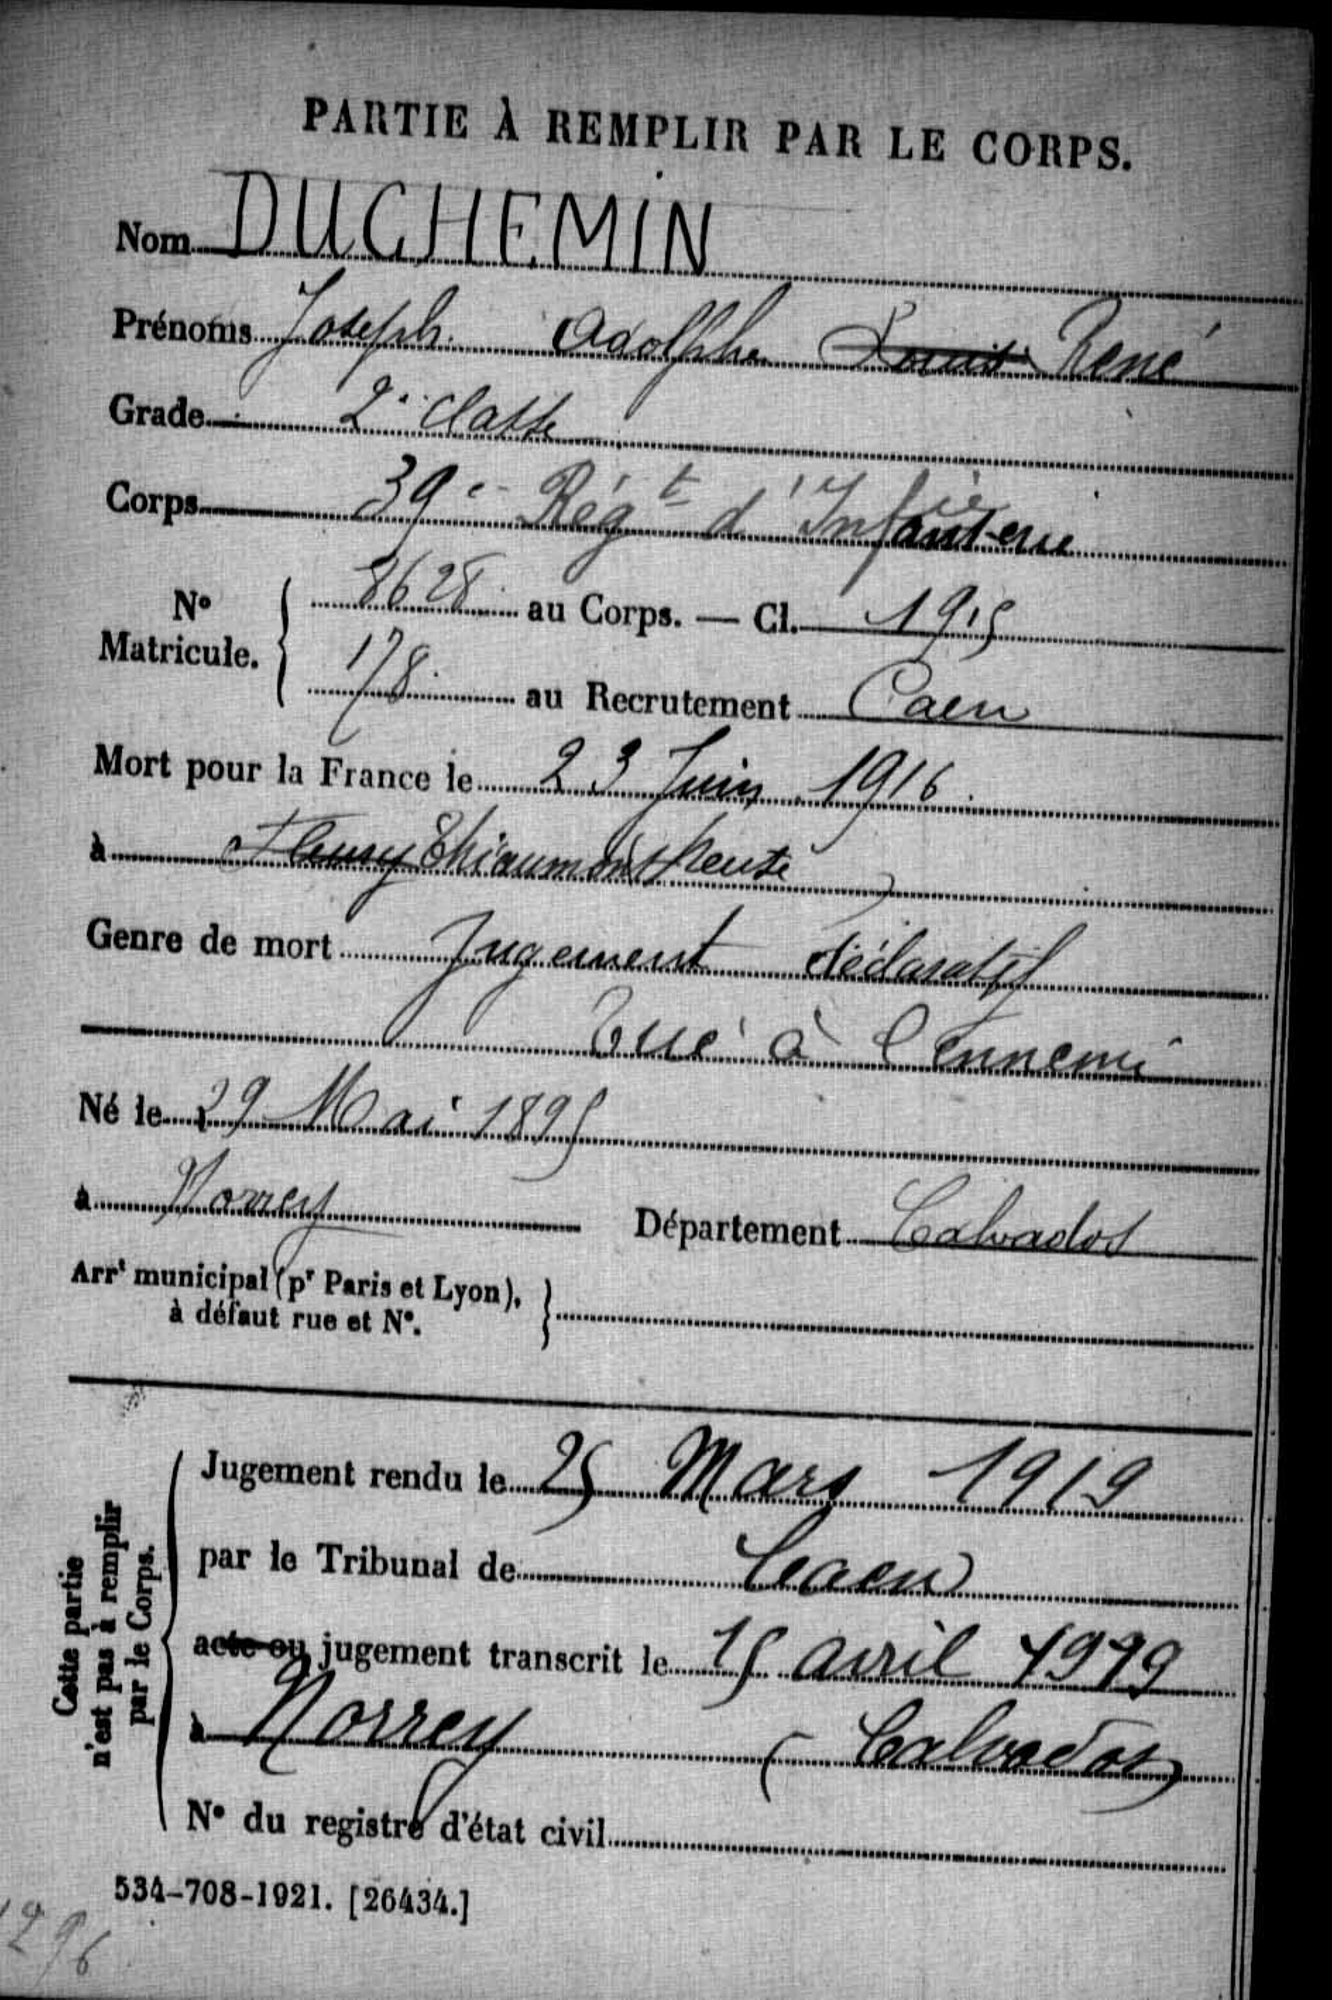 PARTIE À REMPLIR PAR LE CORPS.
Nom DUCHEMIN
Prénoms Joseph Adolphe Louis René
Grade 2e classe
Corps 39e Régt d'Infanterie
No Matricule. 8628 au Corps. — Cl. 1915
178 au Recrutement Caen
Mort pour la France le 23 Juin 1916.
à Fleury Thiaumont Meuse
Genre de mort Jugement déclaratif
Tué à l'ennemi
Né le 29 Mai 1895
à Norrey Département Calvados
Arrt municipal (pr Paris et Lyon),
à défaut rue et No.
Cette partie
n'est pas à remplir
par le Corps.
Jugement rendu le 25 Mars 1919
par le Tribunal de Caen
acte ou jugement transcrit le 15 avril 1919
à Norrey (Calvados)
No du registre d'état civil
534-708-1921. [26434.]
1296